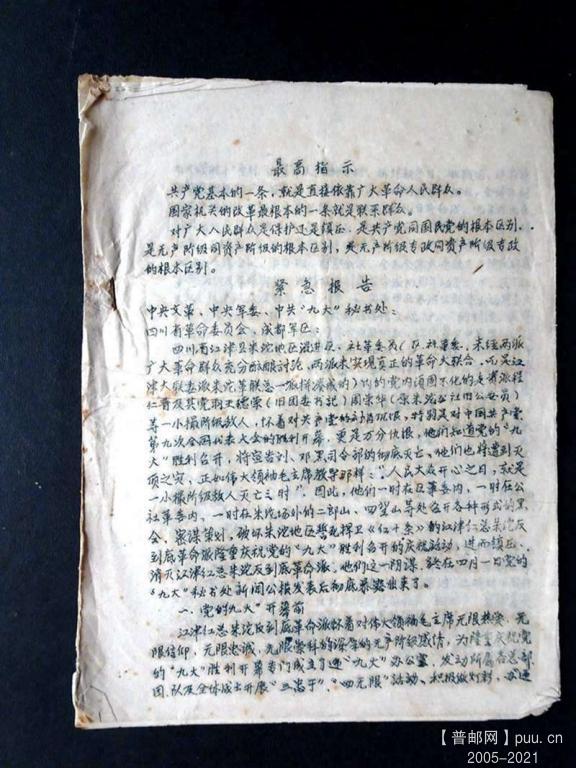 最高指示
共产党基本的一条，就是直接依靠广大革命人民群众。
国家机关的改革最根本的一条就是联系群众。
对广大人民群众是保护还是镇压，是共产党同国民党的根本区别，
是无产阶级同资产阶级的根本区别，是无产阶级专政同资产阶级专政
的根本区别。
紧急报告
中央文革、中央军委、中共“九大”秘书处：
四川省革命委员会、成都军区：
四川省江津县朱沱地区混进区、社革委员（区、社革委，未经两派
广大革命群众充分酝酿讨论，两派未实现真正的革命大联合，而是江
津大叛委派朱沱革联总一派拼凑成的）内的党内顽固不化的走资派程
仁晋及其党羽王德荣（旧团委书记）周荣华（原朱沱公社旧公安员）
等一小撮阶级敌人，怀着对共产党的刻骨仇恨，特别是对中国共产党
第九次全国代表大会的胜利开幕，更是万分仇恨，他们知道党的“九
大”胜利召开，将宣告刘、邓黑司令部的彻底灭亡、他们也将遭到灭
顶之灾，正如伟大领袖毛主席教导那样：“人民大众开心之日，就是
一小撮阶级敌人灭亡之时”。因此，他们一时在区革委内，一时在公
社革委内，一时在朱沱场外的二郎山、四望山等处召开各种形式的黑
会，密谋策划，破坏朱沱地区誓死捍卫《红十条》的江津红总朱沱反
到底革命派隆重庆祝党的“九大”胜利召开的庆祝活动，进而镇压、
消灭江津红总朱沱反到底革命派。他们这一阴谋，终在四月一日党的
“九大”秘书处新闻公报发表后彻底暴露出来了。
一、党的“九大”开幕前
江津红总朱沱反到底革命派怀着对伟大领袖毛主席无限热爱、无
限信仰、无限忠诚、无限崇拜的深厚的无产阶级感情，为隆重庆祝党
的“九大”胜利开幕专门成立了迎“九大”办公室，发动所属各总部
团、队及全体战士开展“三忠于”、“四无限”活动、积极做灯彩，办迎
【普邮网】puu.cn
2005-2021